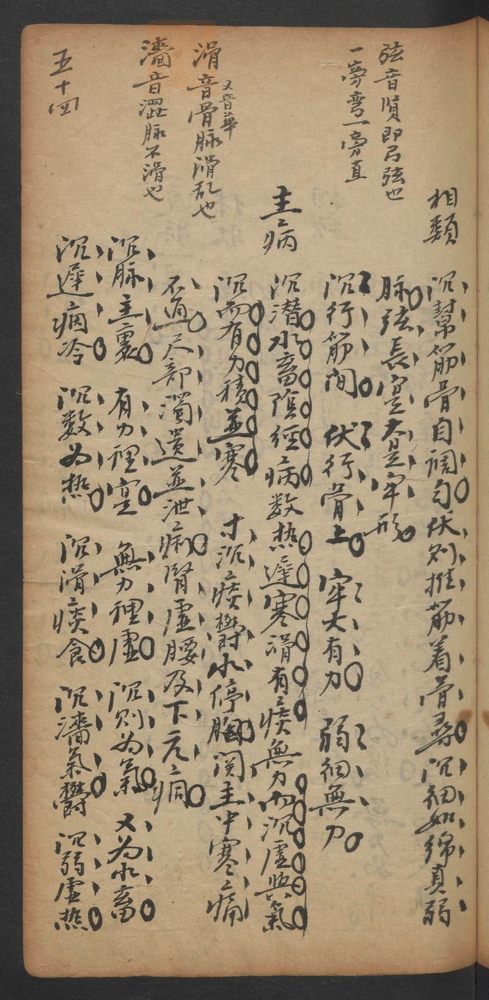 弦音賢即弓弦也
一旁弯一旁直
滑音骨脉滑乱也
又音華
濇音澀脉不滑也
五十四
相類
沉幇筋骨自調匀伏则推筋着骨尋沉细如綿真弱
脉弦長寔大是牢形
沉行筋间 伏行骨上 牢大有力 弱细無力
主病
沉潜水畜陰經病数热遲寒滑有痰無力而沉虚與氣
沉而有力積並寒 寸沉痰欝水停胸関主中寒痛
不通尺部濁遺並泄痢腎虚腰及下元病
沉脉主裏 有力裡寔 無力裡虚 沉则为氣 又为水畜
沉遲痼冷 沉数为热 沉滑痰食 沉濇氣欝 沉弱虚热